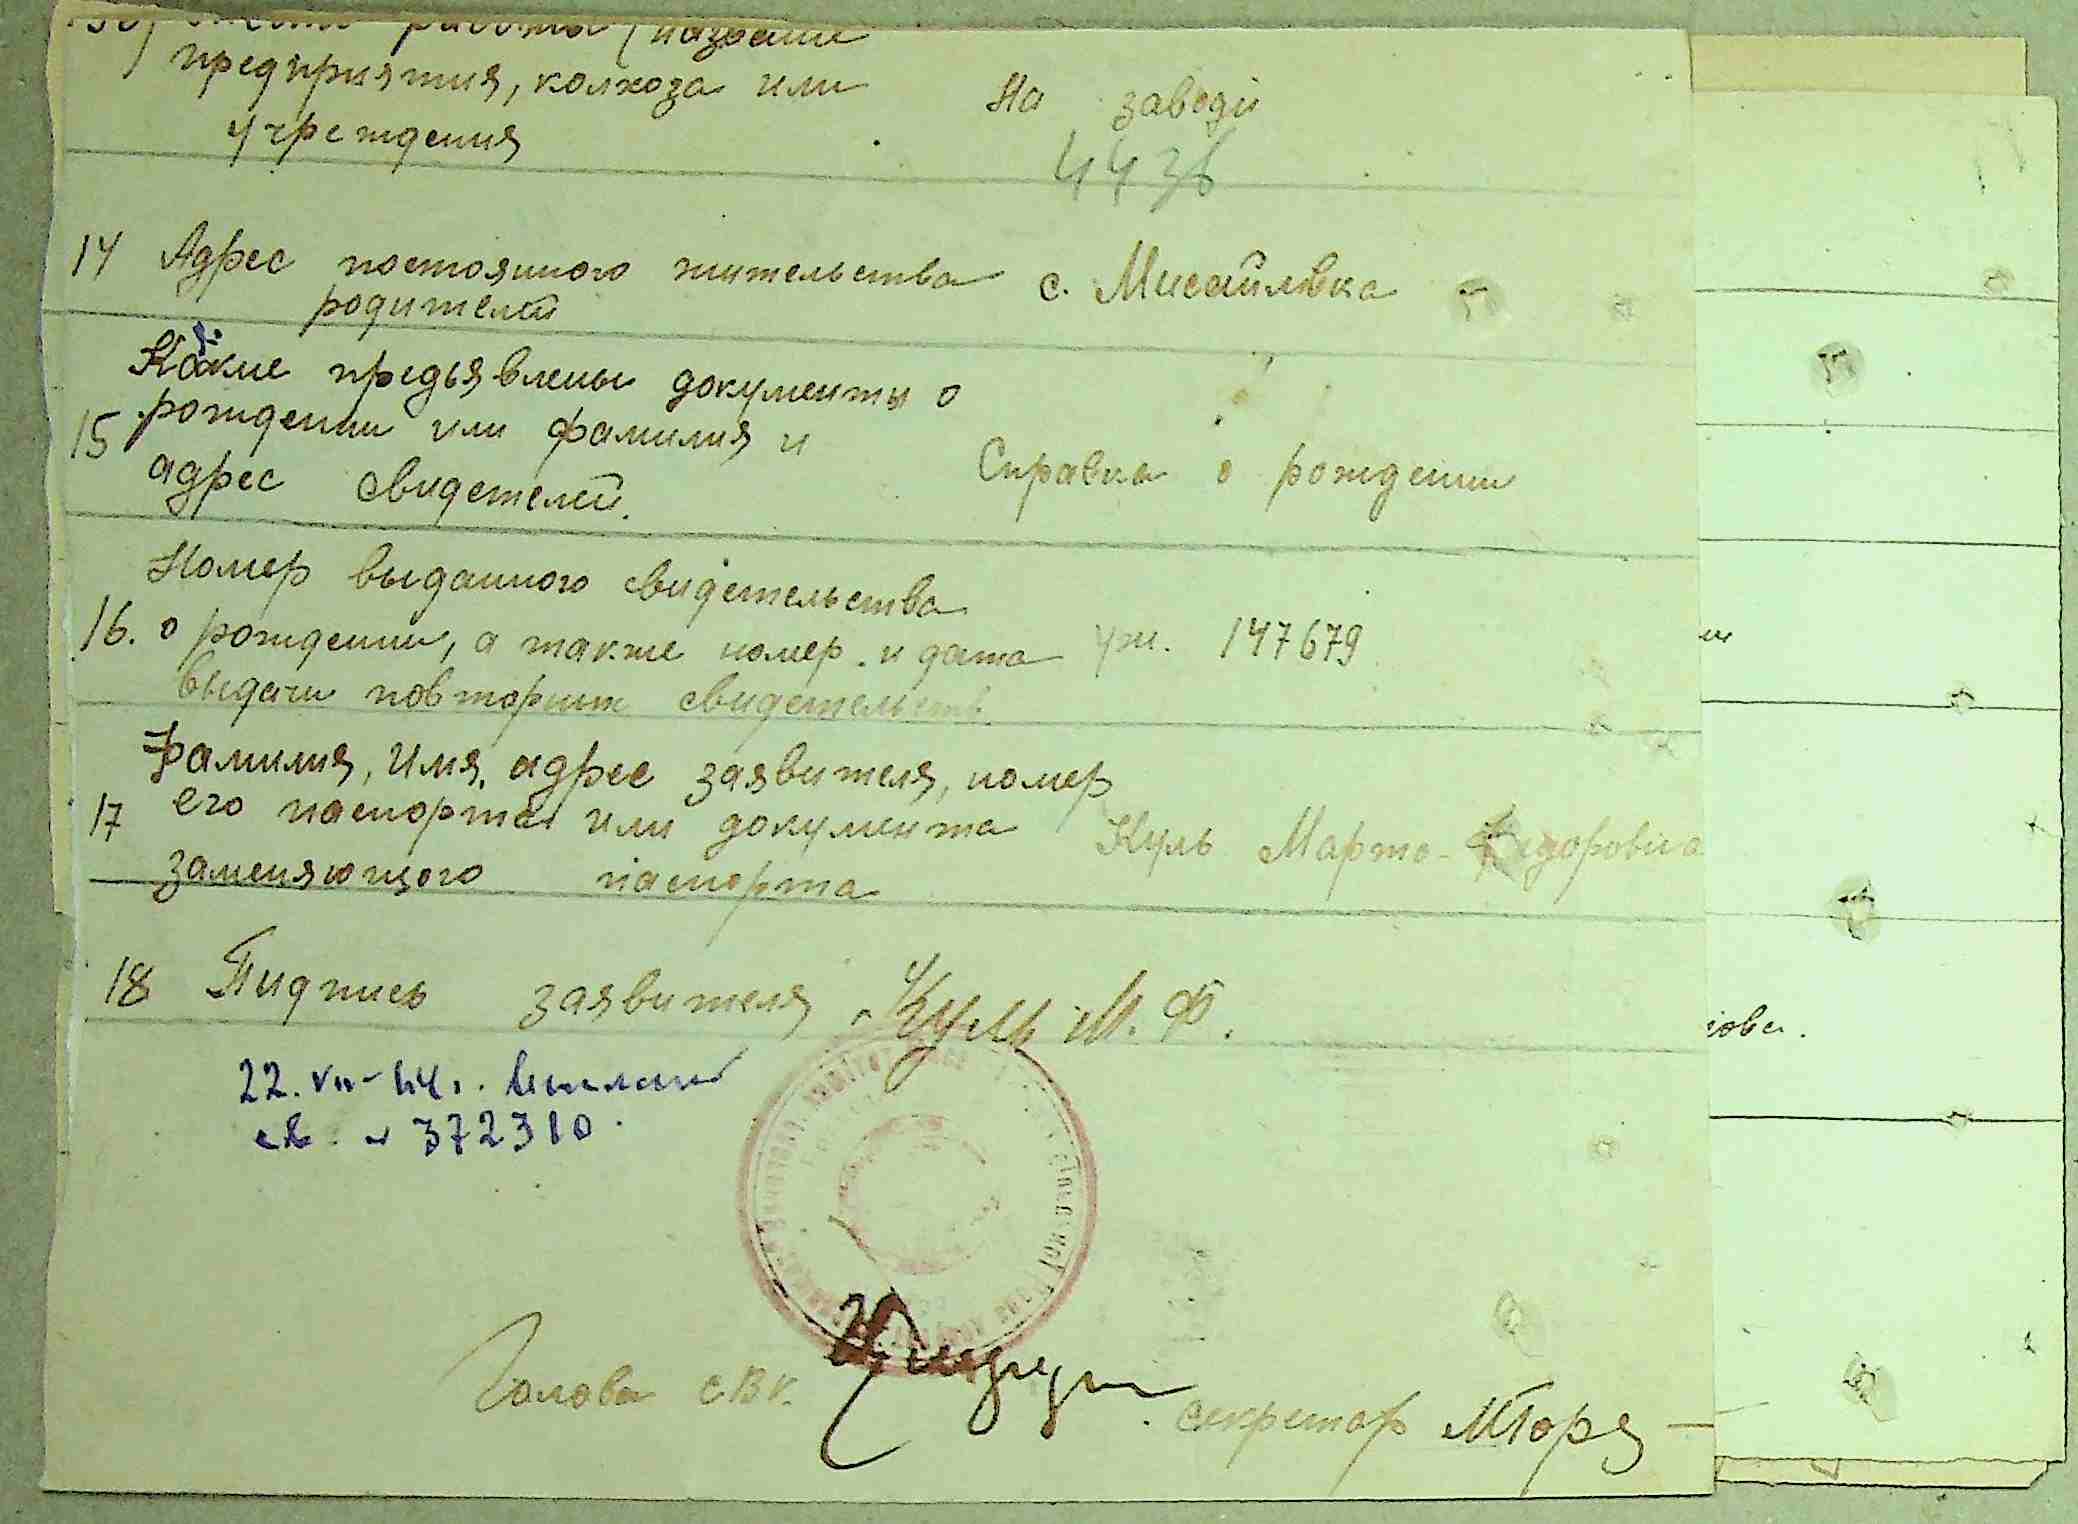 место работы (название
предприятия, колхоза или На заводі
учреждения
443в
14 Адрес постоянного жительства с. Мисайлівка
родителей
Какие предъявлены документы о
15 рождении или фамилия и
адрес свидетелей. Справка о рождении
Номер выданного свидетельства
16. о рождении, а также номер и дата уж. 147679
выдачи повторных свидетельств
Фамилия, Имя, адрес заявителя, номер
17 его паспорта или документа Куль Марта Федоровна
заменяющего паспорта
18 Пидпись заявителя Куль М. Ф.
22. VII-44г.
св. № 372310.
Голова с.в.к. секретар